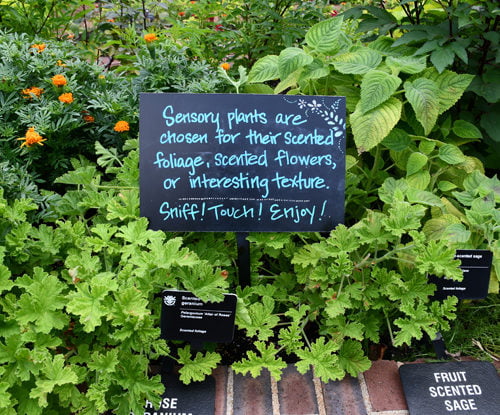 Sensory plants are
chosen for their scented
foliage, scented flowers,
or interesting texture.
Sniff! Touch! Enjoy!
Scented
geranium
Pelargonium 'Attar of Roses'
Geraniaceae
Scented foliage
-scented sage
Scented foliage
ROSE
GERANIUM
FRUIT
SCENTED
SAGE